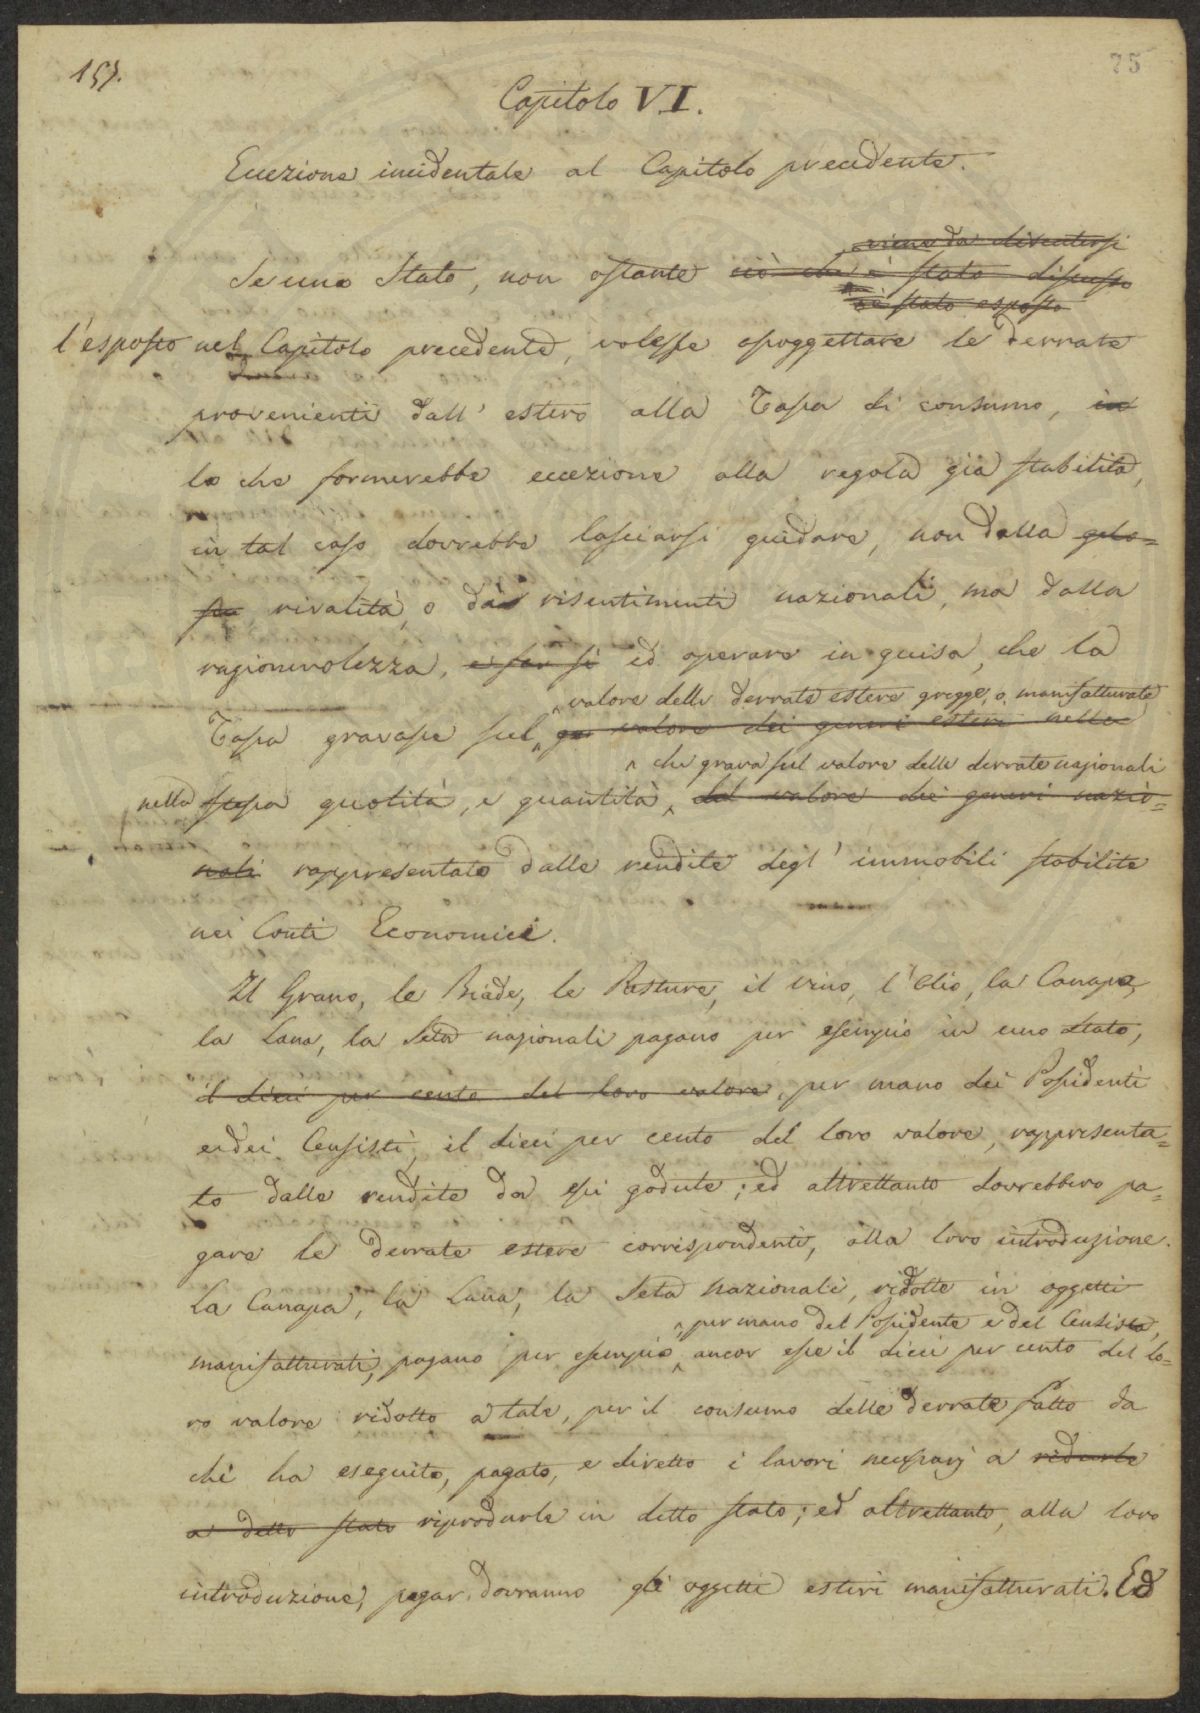 157.
75
Capitolo VI.
Eccezione incidentale al Capitolo precedente.
viene da discutersi
Se uno Stato, non ostante ciò che è stato discusso
è stato esposto
l'esposto nel Capitolo precedente, volesse assoggettare le derrate
provenienti dall' estero alla Tassa di consumo, in
lo che formerebbe eccezione alla regola già stabilita,
in tal caso dovrebbe lasciarsi guidare, non dalla gelo=
sia rivalità, o dai risentimenti nazionali, ma dalla
ragionevolezza, e far sì ed operare in guisa, che la
valore delle derrate estere gregge, o manifatturate
Tassa gravasse sul valore dei generi esteri nella
che grava sul valore delle derrate nazionali
nella stessa quotità, e quantità, del valore dei generi nazio=
nali rappresentato dalle rendite degl' immobili stabilite
nei Conti Economici.
Il Grano, le Biade, le Pasture, il vino, l'Olio, la Canapa,
la Lana, la Seta nazionali pagano per esempio in uno Stato,
il dieci per cento del loro valore, per mano dei Possidenti
e dei Censisti, il dieci per cento del loro valore, rappresenta=
to dalle rendite da essi godute; ed altrettanto dovrebbero pa=
gare le derrate estere corrispondenti, alla loro introduzione.
La Canapa, la Lana, la Seta nazionali, ridotte in oggetti
per mano del Possidente e del Censista,
manifatturati, pagano per esempio ancor esse il dieci per cento del lo=
ro valore ridotto a tale, per il consumo delle derrate fatto da
chi ha eseguito, pagato, e diretto i lavori necessarj a ridurle
a detto stato riprodurle in detto stato; ed altrettanto, alla loro
introduzione, pagar dovranno gli oggetti esteri manifatturati. Ed